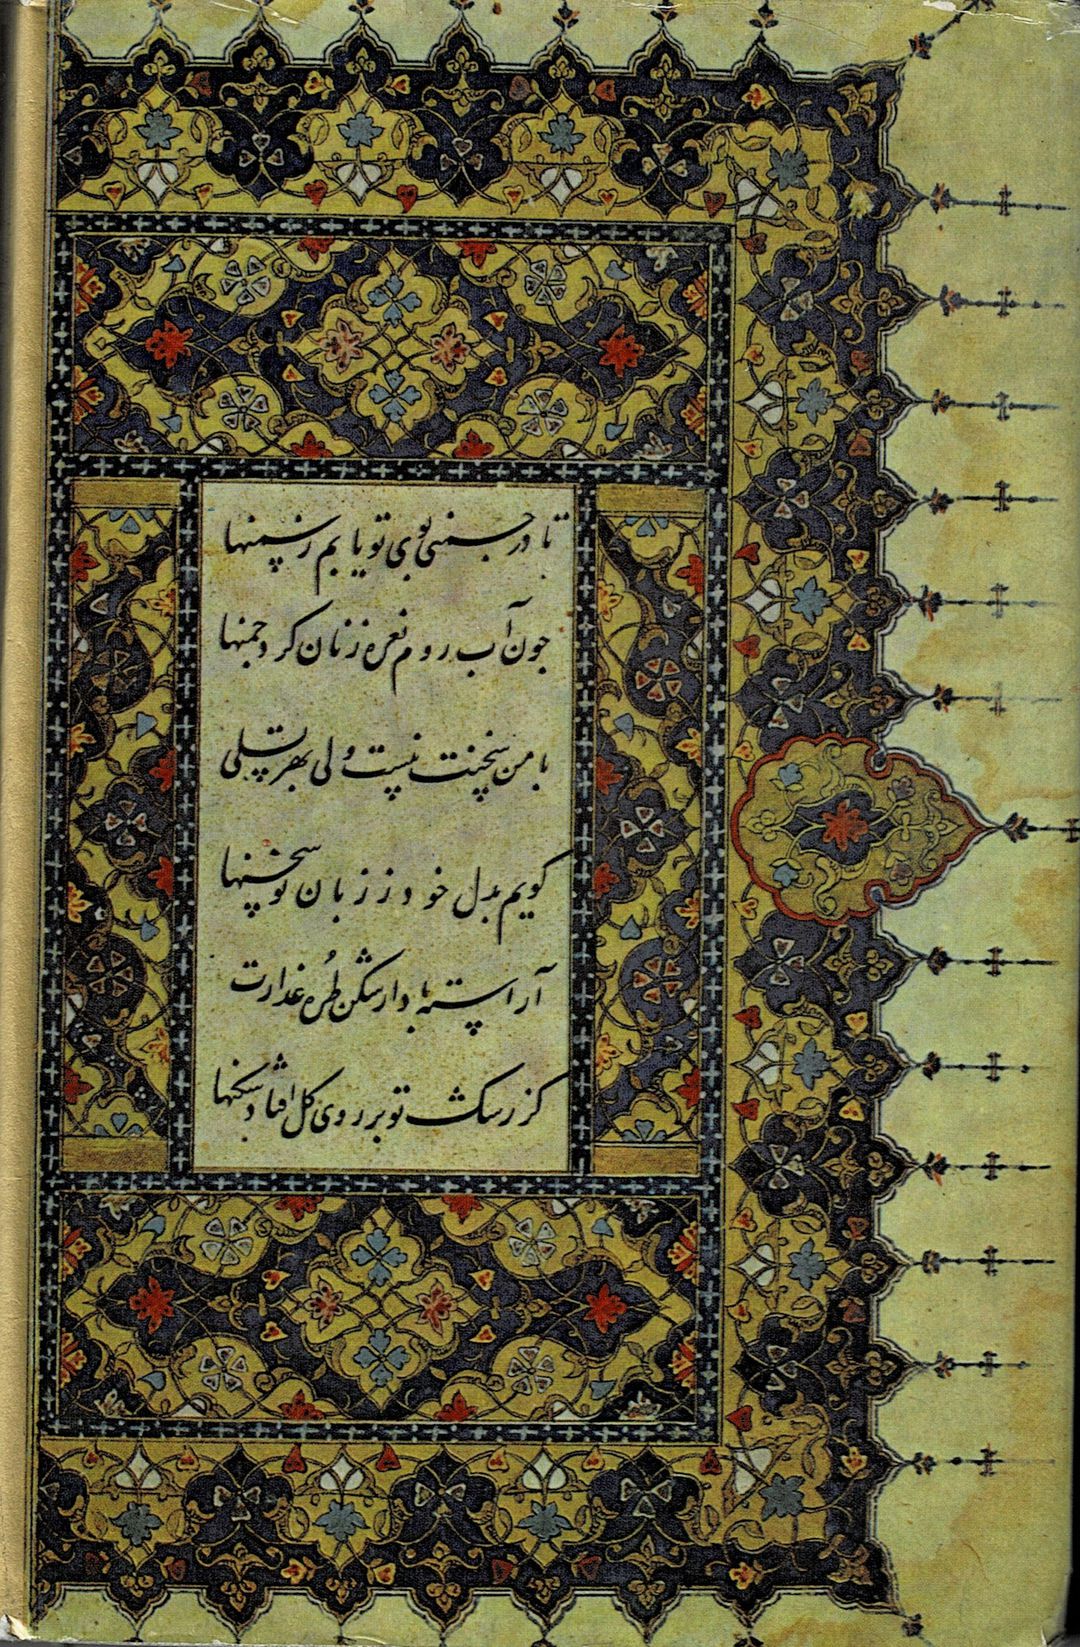 تا در چمنی بوی تو یابم ز سمنها
چون آب روم نعره زنان کرد چمنها
با من سخنت نیست ولی بهر تسلی
کویم بدل خود ز زبان تو سخنها
آراسته باد ار شکن طره عذارت
کز رشک تو بر روی کل افتاد شکنها